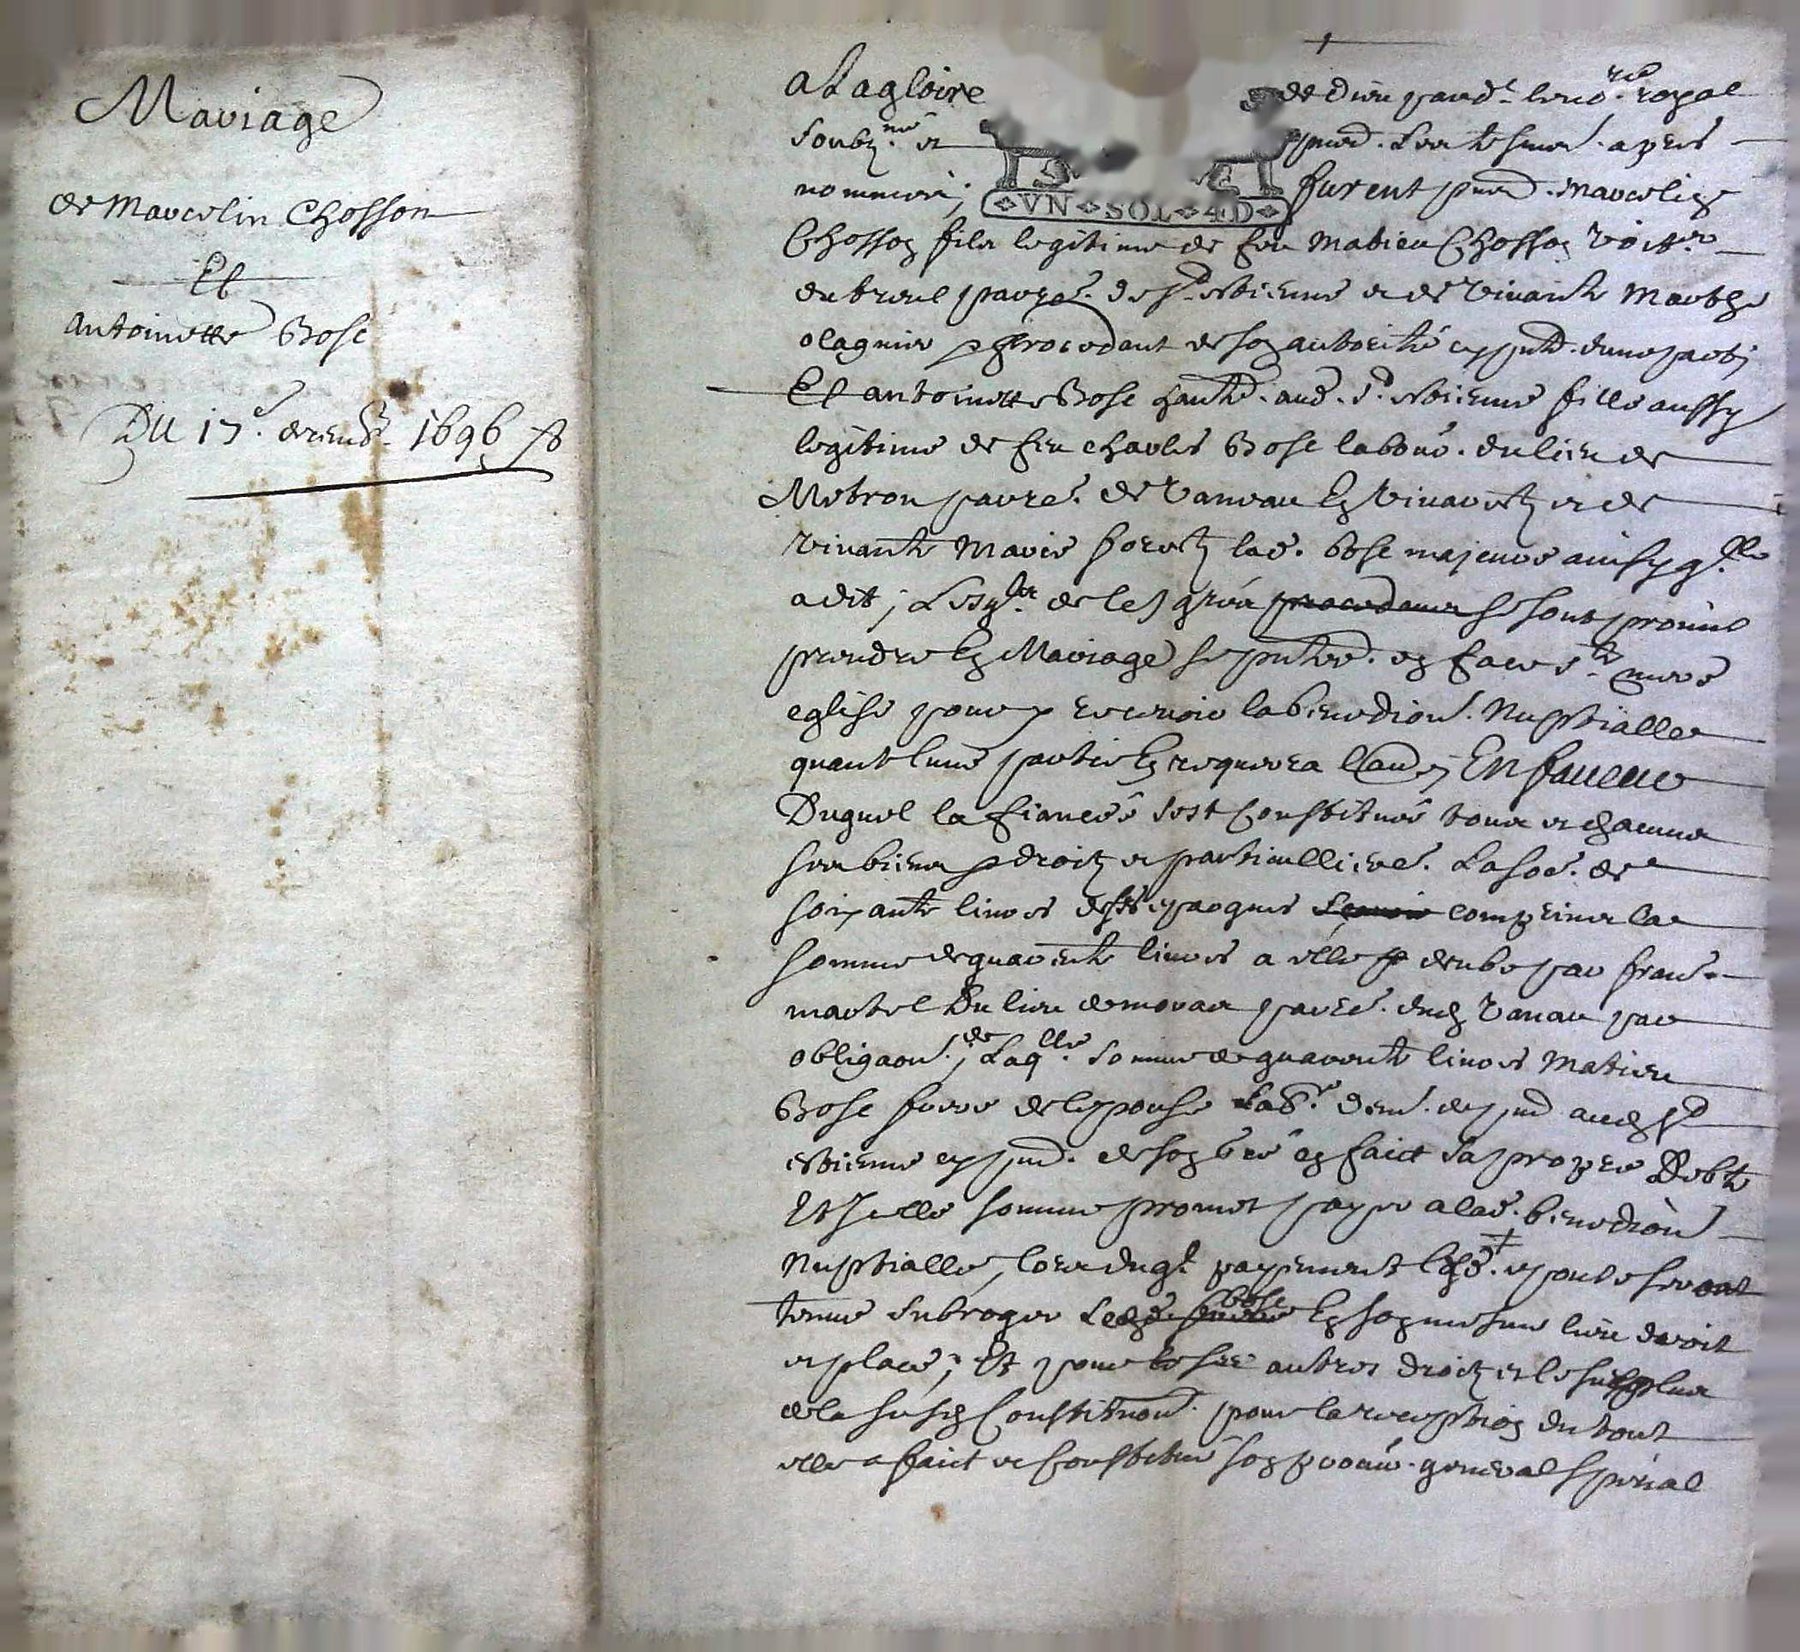 Mariage
de Marcelin Chosson
Et
Antoinette Bosc
Du 17e. 1696
a La gloire de Dieu pard.t le no.re royal
soubz.né et pnts. Les tesmoins. apres
nommés; furent pnts. Marcelin
VN SOL 4D
Chosson filz legitime de feu Matieu Chosson
du breul parroe. de St. estienne et de vivante Marthe
olagnier procedant de son authorité d'une part
Et antoinette Bosc hante. aud. St. estienne fille aussy
legitime de feu Charles Bosc labour. du lieu de
Metrou parroe. de Vanau En Vivaretz et de
vivante Marie lad. bosc majeure ainsy q.lle
a dit; Lesq.ls de leur gré procedans se sont promis
prendre En Mariage se en face ste. mere
eglise pour y recevoir la benedion. Nuptialle
quant l'une partie En requerra l'au.e; En faveur
Duquel la fiancée s'est Constituée tous et chacuns
ses biens droitz et particullierent. La soe. de
soixante livres comprins la
somme de quarante livres a elle deube par frans.
martel Du lieu de parroe. dud. Vanau par
obligaon.; de Laq.lle somme de quarante livres Matieu
Bosc frere de l'epouse aud. St
estienne de son gré en faict sa propre Debte
Et Icelle somme promet payer a lad. benedion
Nuptialle, lors duq.l payement seront
tenus subroger Led. bosc En son mesme lieu droit
et place; Et pour ses autres droitz et le surplus
de la susd. Constituon. pour la reception du tout
elle a faict et Constitué son procur. general special